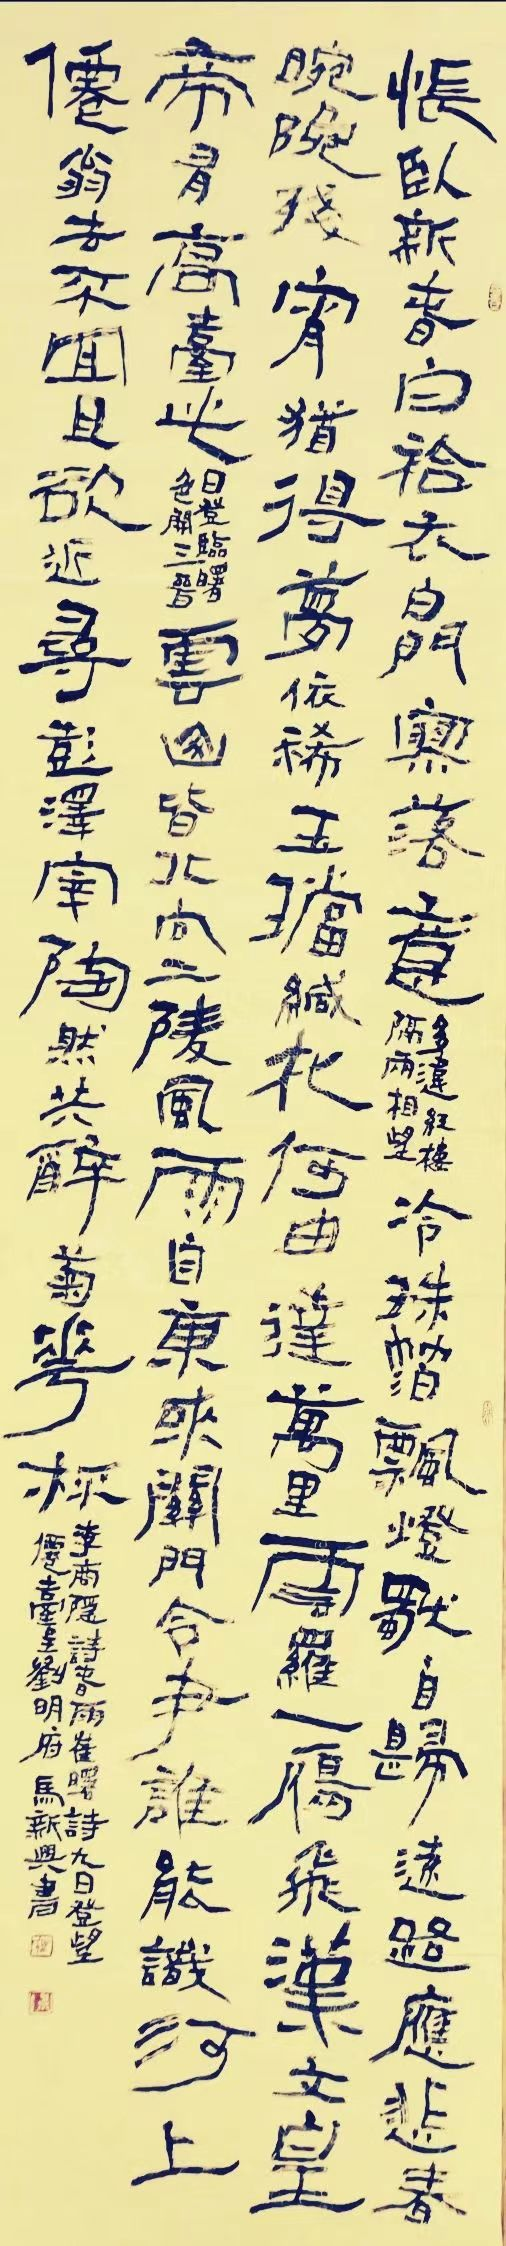 悵臥新春白袷衣白門寥落意多違紅樓隔雨相望冷珠箔飄燈獨自歸遠路應悲春
晼晚殘宵猶得夢依稀玉璫緘札何由達萬里雲羅一雁飛漢文皇
帝有高臺此日登臨曙色開三晉雲山皆北向二陵風雨自東來關門令尹誰能識河上
僊翁去不回且欲近尋彭澤宰陶然共醉菊花杯
李商隱詩春雨崔曙詩九日登望
僊臺呈劉明府 馬新興書